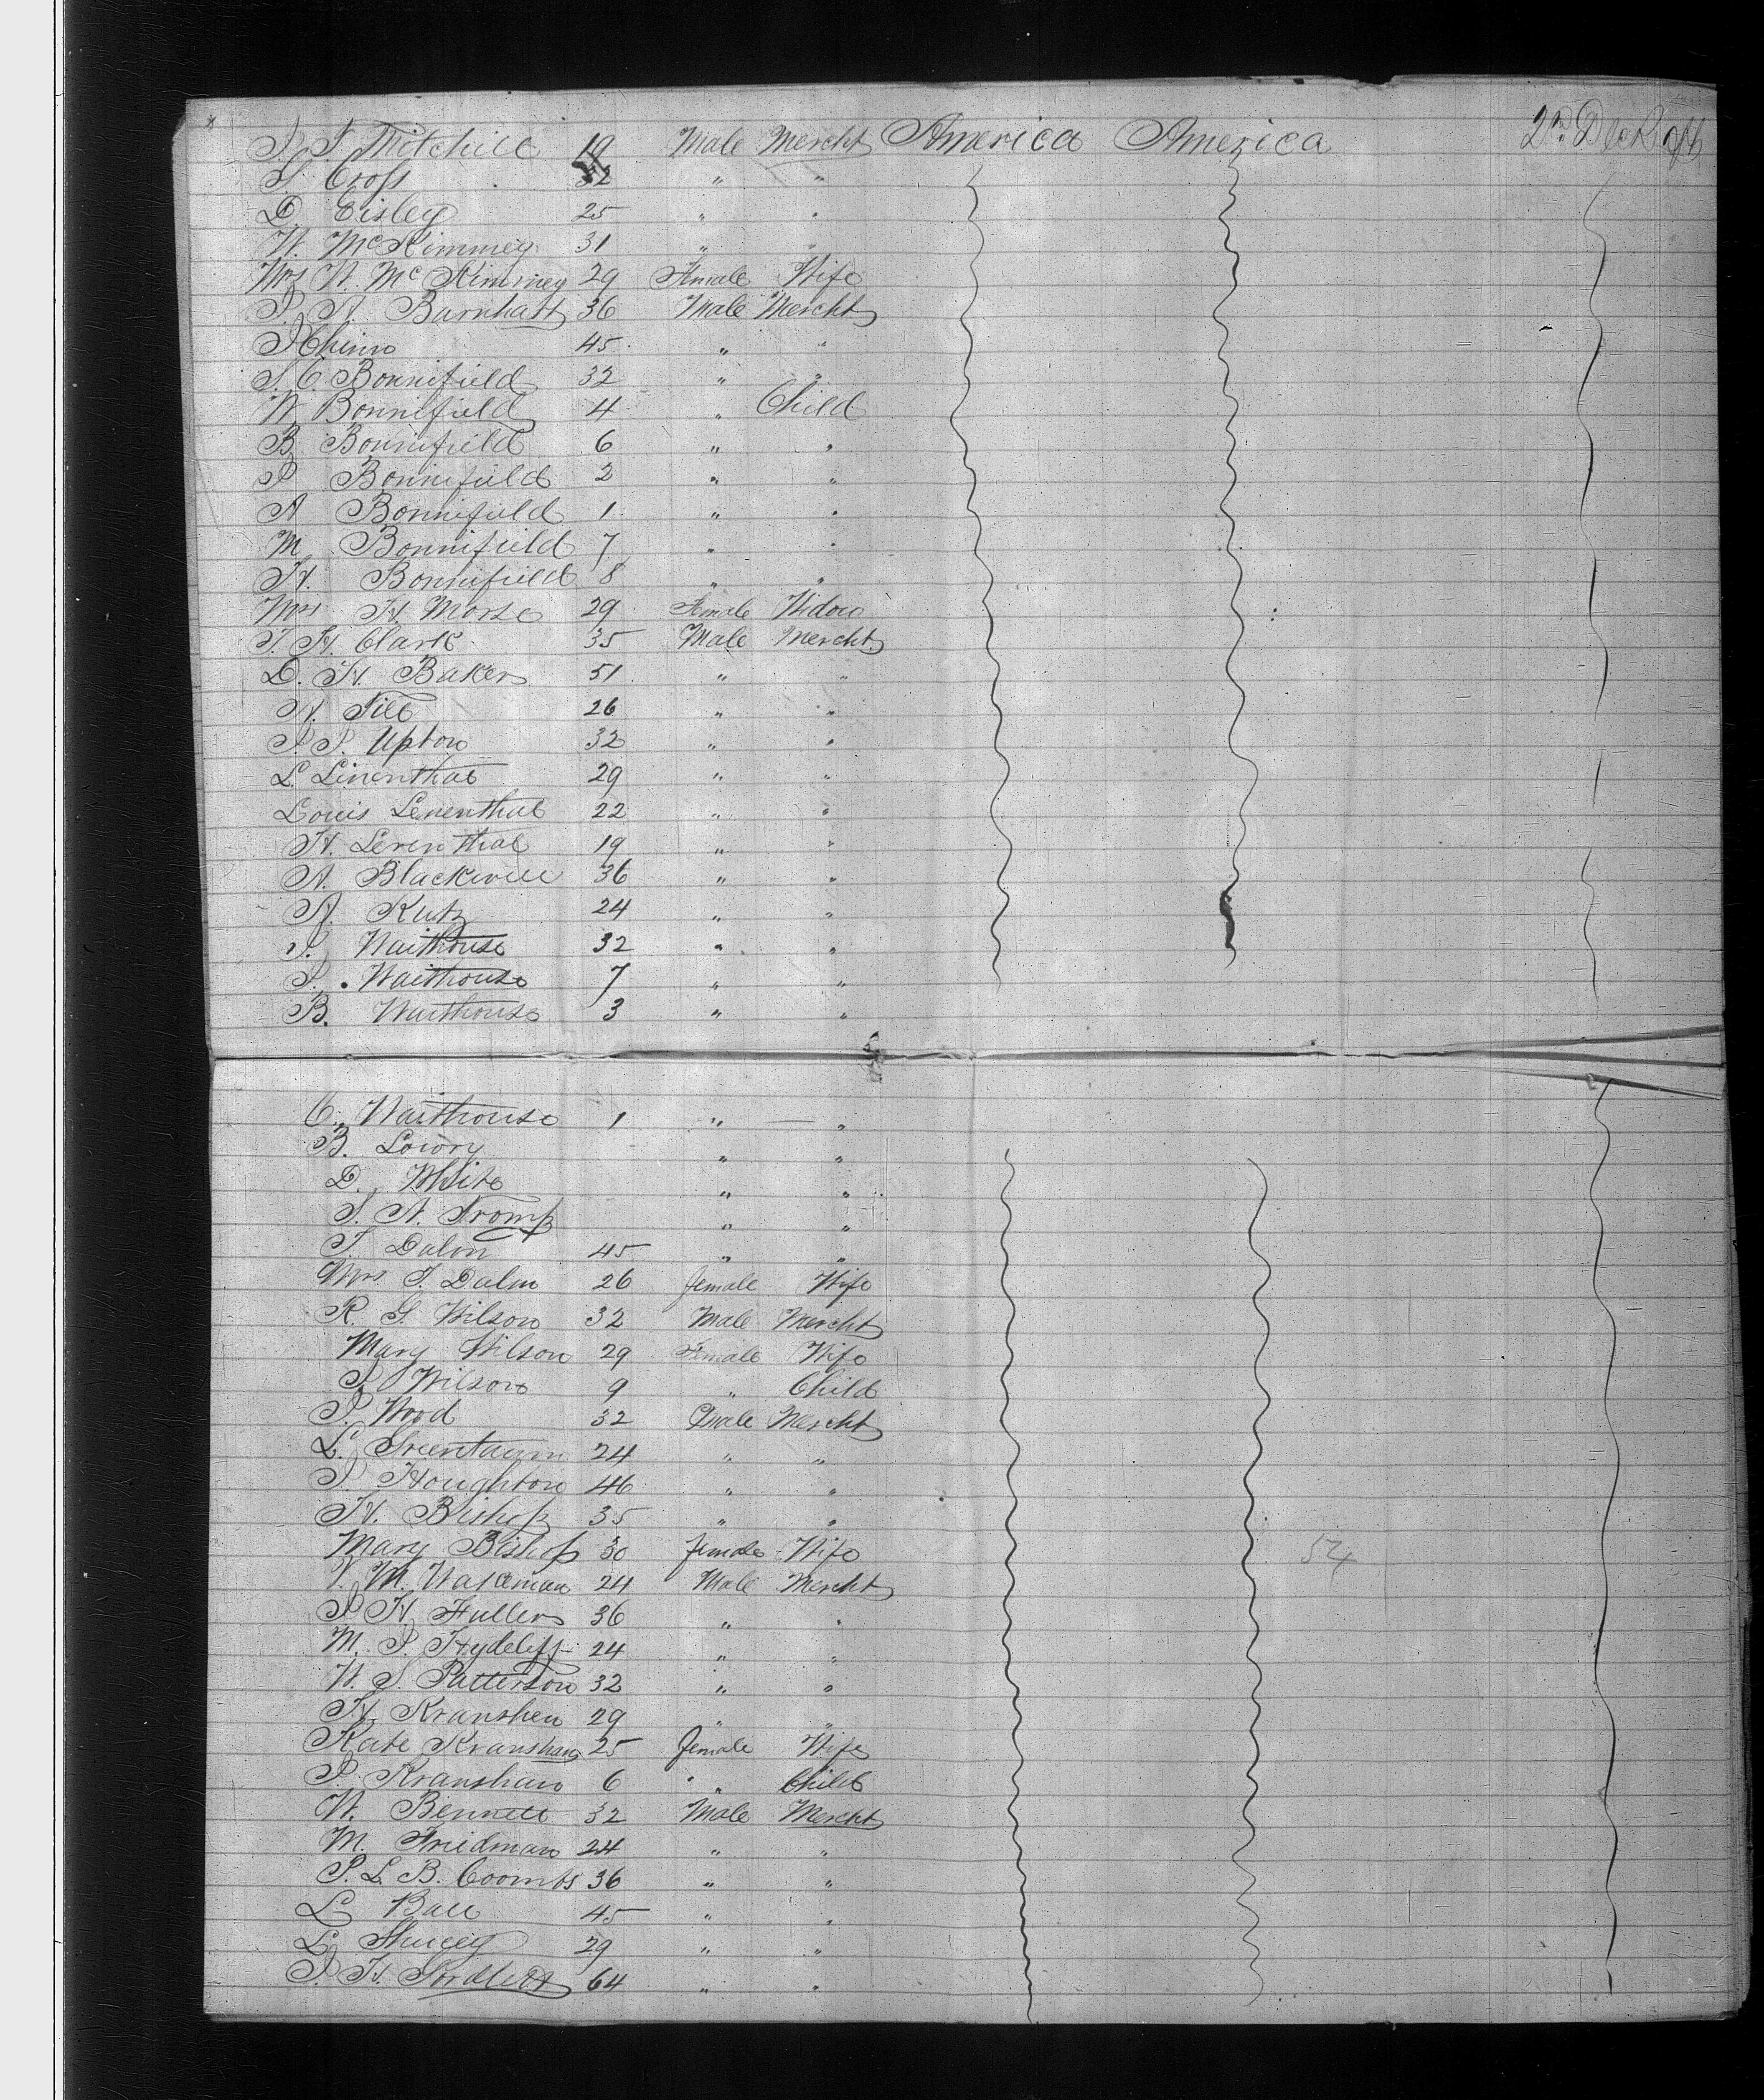 J. F. Mitchill 19 Male Mercht America America 2nd Deck
S. Cross 32 " "
D. Eisley 25 " "
W. McKimmey 31 " "
Mrs W. McKimmey 29 Female Wife
J. A. Barnhart 36 Male Mercht
45 " "
S. C. Bonnifield 32 " "
W Bonnifield 4 " Child
B Bonnifield 6 " "
P Bonnifield 2 " "
A Bonnifield 1 " "
M Bonnifield 7 " "
H. Bonnifield 8 " "
Mrs H. Morse 29 Female Widow
T. H. Clark 35 Male Mercht
D. H. Baker 51 " "
26 " "
J. P. Upton 32 " "
L. Linenthal 29 " "
Louis Lenenthal 22 " "
H. Leventhal 19 " "
A. Blackwell 36 " "
A. Kutz 24 " "
J. Waithouse 32 " "
J. Waithouse 7 " "
B. Waithouse 3 " "
C. Waithouse 1 " — "
B. Lowry " "
D. White " "
S. A. Tromp " "
T. Dalon 45 " "
Mrs T. Dalon 26 female Wife
R. G. Wilson 32 Male Mercht
Mary Wilson 29 Female Wife
P. Wilson 9 " Child
J. Wood 32 Male Mercht
L. Greentaum 24 " "
P. Houghton 46 " "
H. Bishop 35 " "
Mary Bishop 30 female Wife 54
V. M. Wakeman 24 Male Mercht
P H. Fuller 36 " "
M. P. 24 " "
W. S. Patterson 32 " "
H. Kranshen 29 " "
Kate Kranshaw 25 female Wife
P. Kranshaw 6 " Child
W. Bennett 32 Male Mercht
M. Friedman 24 " "
P. L. B. Coombs 36 " "
L Ball 45 " "
L. 29 " "
J. H. 64 " "